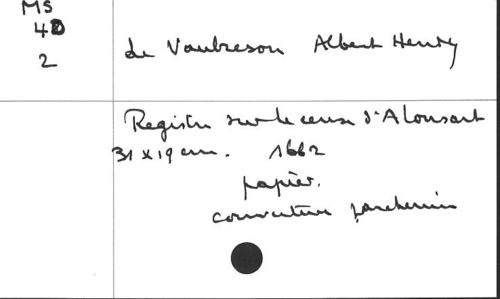 MS
40
2
de Vaubreson Albert Henry
Registre sur le cense d'Alonsart
31 x 19 cm. 1662
papier.
couverture parchemin